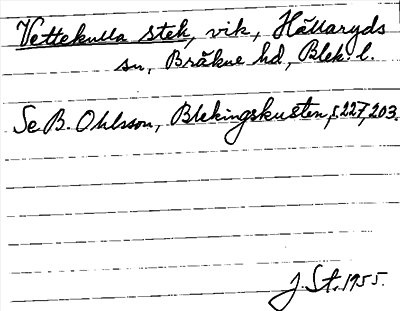 Vettekulla stek, vik, Hällaryds
sn, Bräkne hd, Blek. l.
Se B. Ohlsson, Blekingskusten, s. 227, 203.
J. St. 1955.